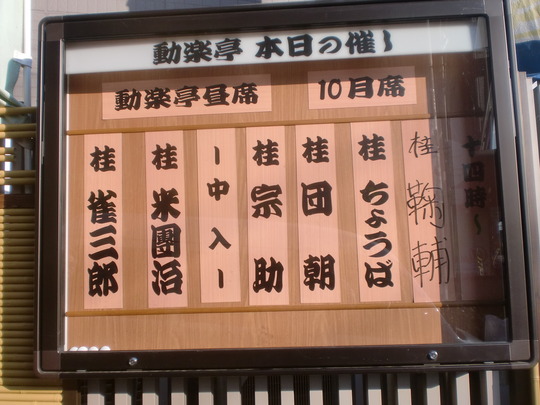 動楽亭 本日の催し
動楽亭昼席
10月席
十四時〜
桂 鞠輔
桂 ちょうば
桂 団朝
桂 宗助
ー中入ー
桂 米團治
桂 雀三郎